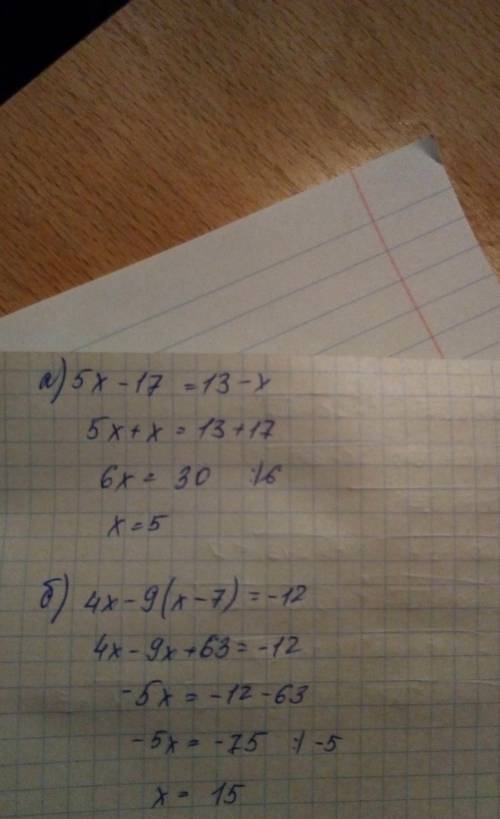 а) 5x - 17 = 13 - x
5x + x = 13 + 17
6x = 30 :/6
x = 5
б) 4x - 9(x - 7) = -12
4x - 9x + 63 = -12
-5x = -12 - 63
-5x = -75 :/ -5
x = 15